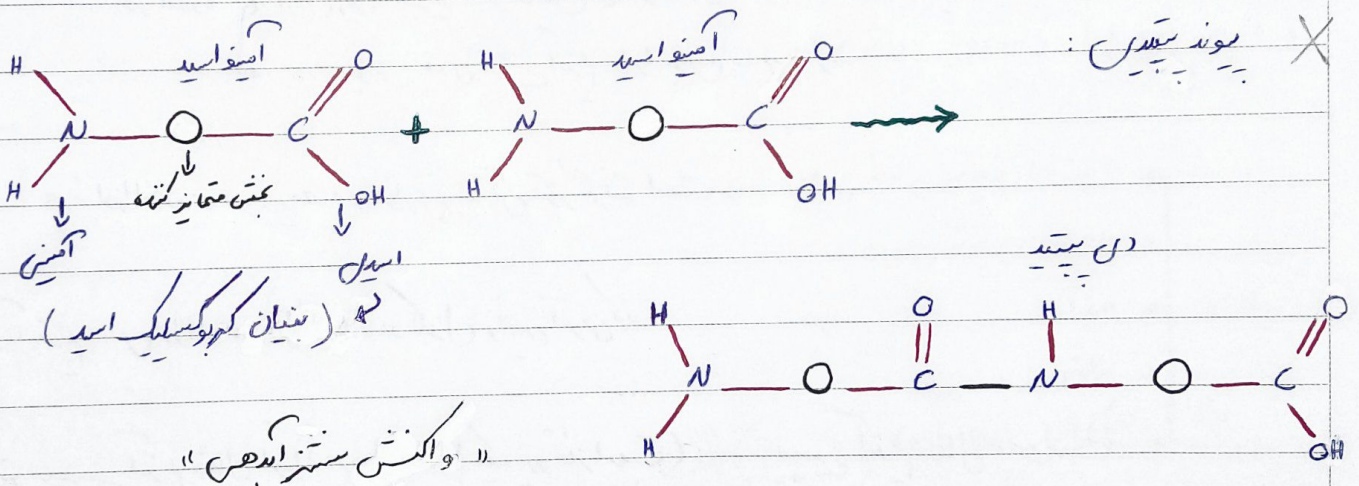 پیوند پپتیدی :
آمینو اسید
آمینو اسید
H
N
H
C
O
OH
+
H
N
H
C
O
OH
بخش متمایز کننده
آمینی
اسیدی
(بنیان کربوکسیلیک اسید)
دی پپتید
H
N
H
O
C
H
N
C
O
OH
« واکنش سنتز آبدهی »